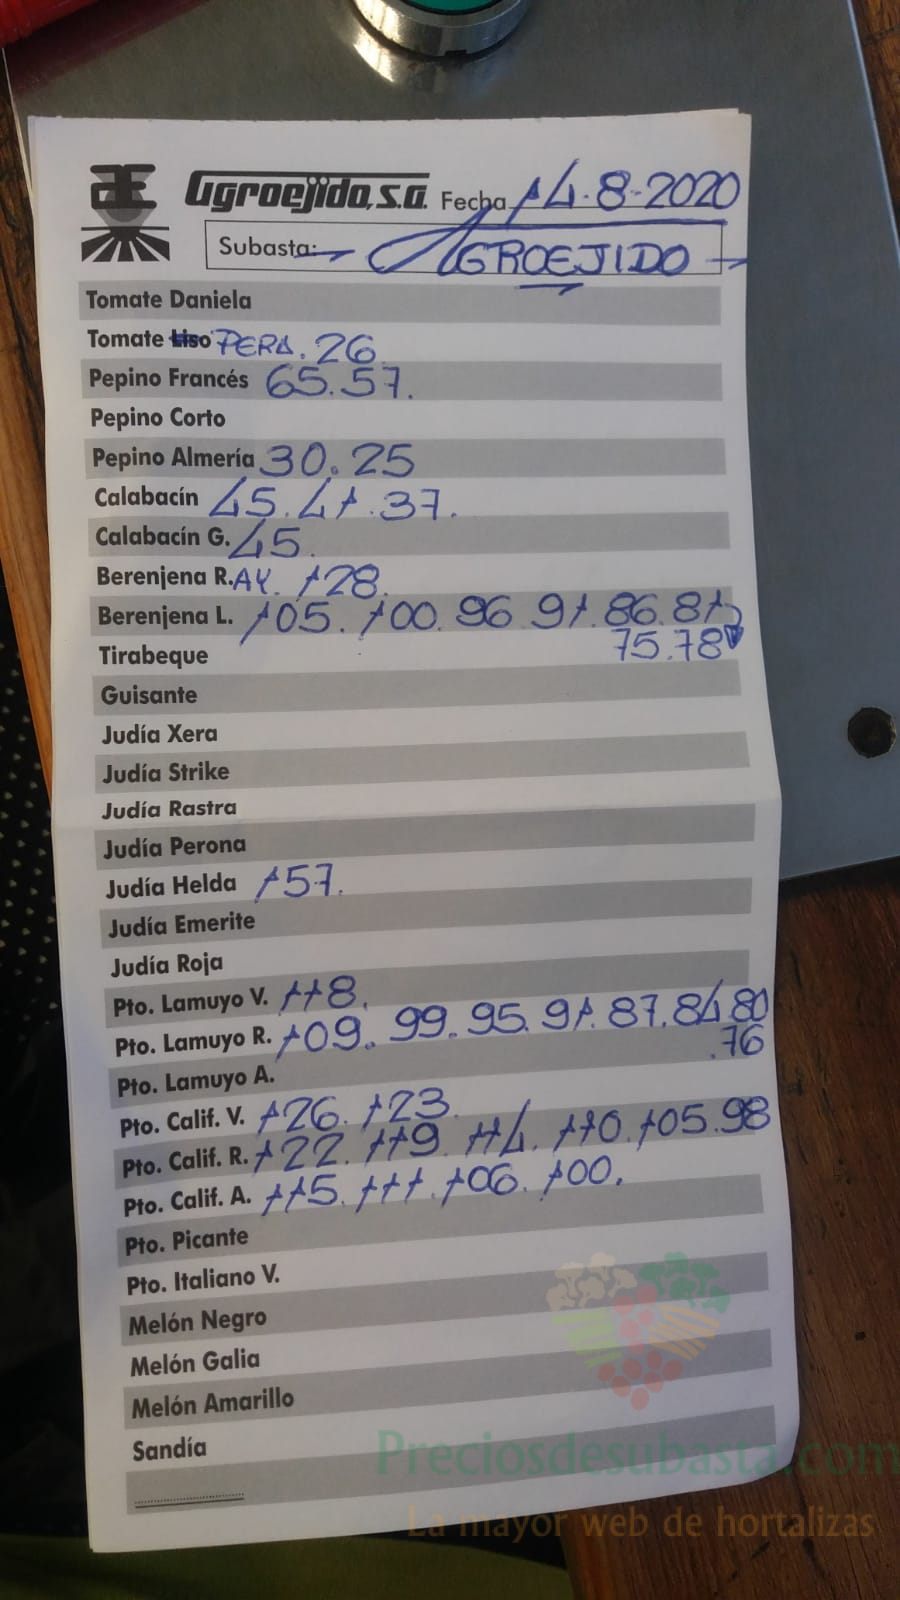 Agroejido, S.A. Fecha 14-8-2020
Subasta: AGROEJIDO
Tomate Daniela
Tomate Liso PERA. 26
Pepino Francés 65.57.
Pepino Corto
Pepino Almería 30.25
Calabacín 45.41.37.
Calabacín G. 45.
Berenjena R. AY. 128.
Berenjena L. 105. 100. 96. 91. 86. 81
75.78
Tirabeque
Guisante
Judía Xera
Judía Strike
Judía Rastra
Judía Perona
Judía Helda 157.
Judía Emerite
Judía Roja
Pto. Lamuyo V. 118.
Pto. Lamuyo R. 109. 99. 95. 91. 87. 84. 80
.76
Pto. Lamuyo A.
Pto. Calif. V. 126. 123.
Pto. Calif. R. 122. 119. 114. 110. 105. 98
Pto. Calif. A. 115. 111. 106. 100.
Pto. Picante
Pto. Italiano V.
Melón Negro
Melón Galia
Melón Amarillo
Sandía
Preciosdesubasta.com
La mayor web de hortalizas